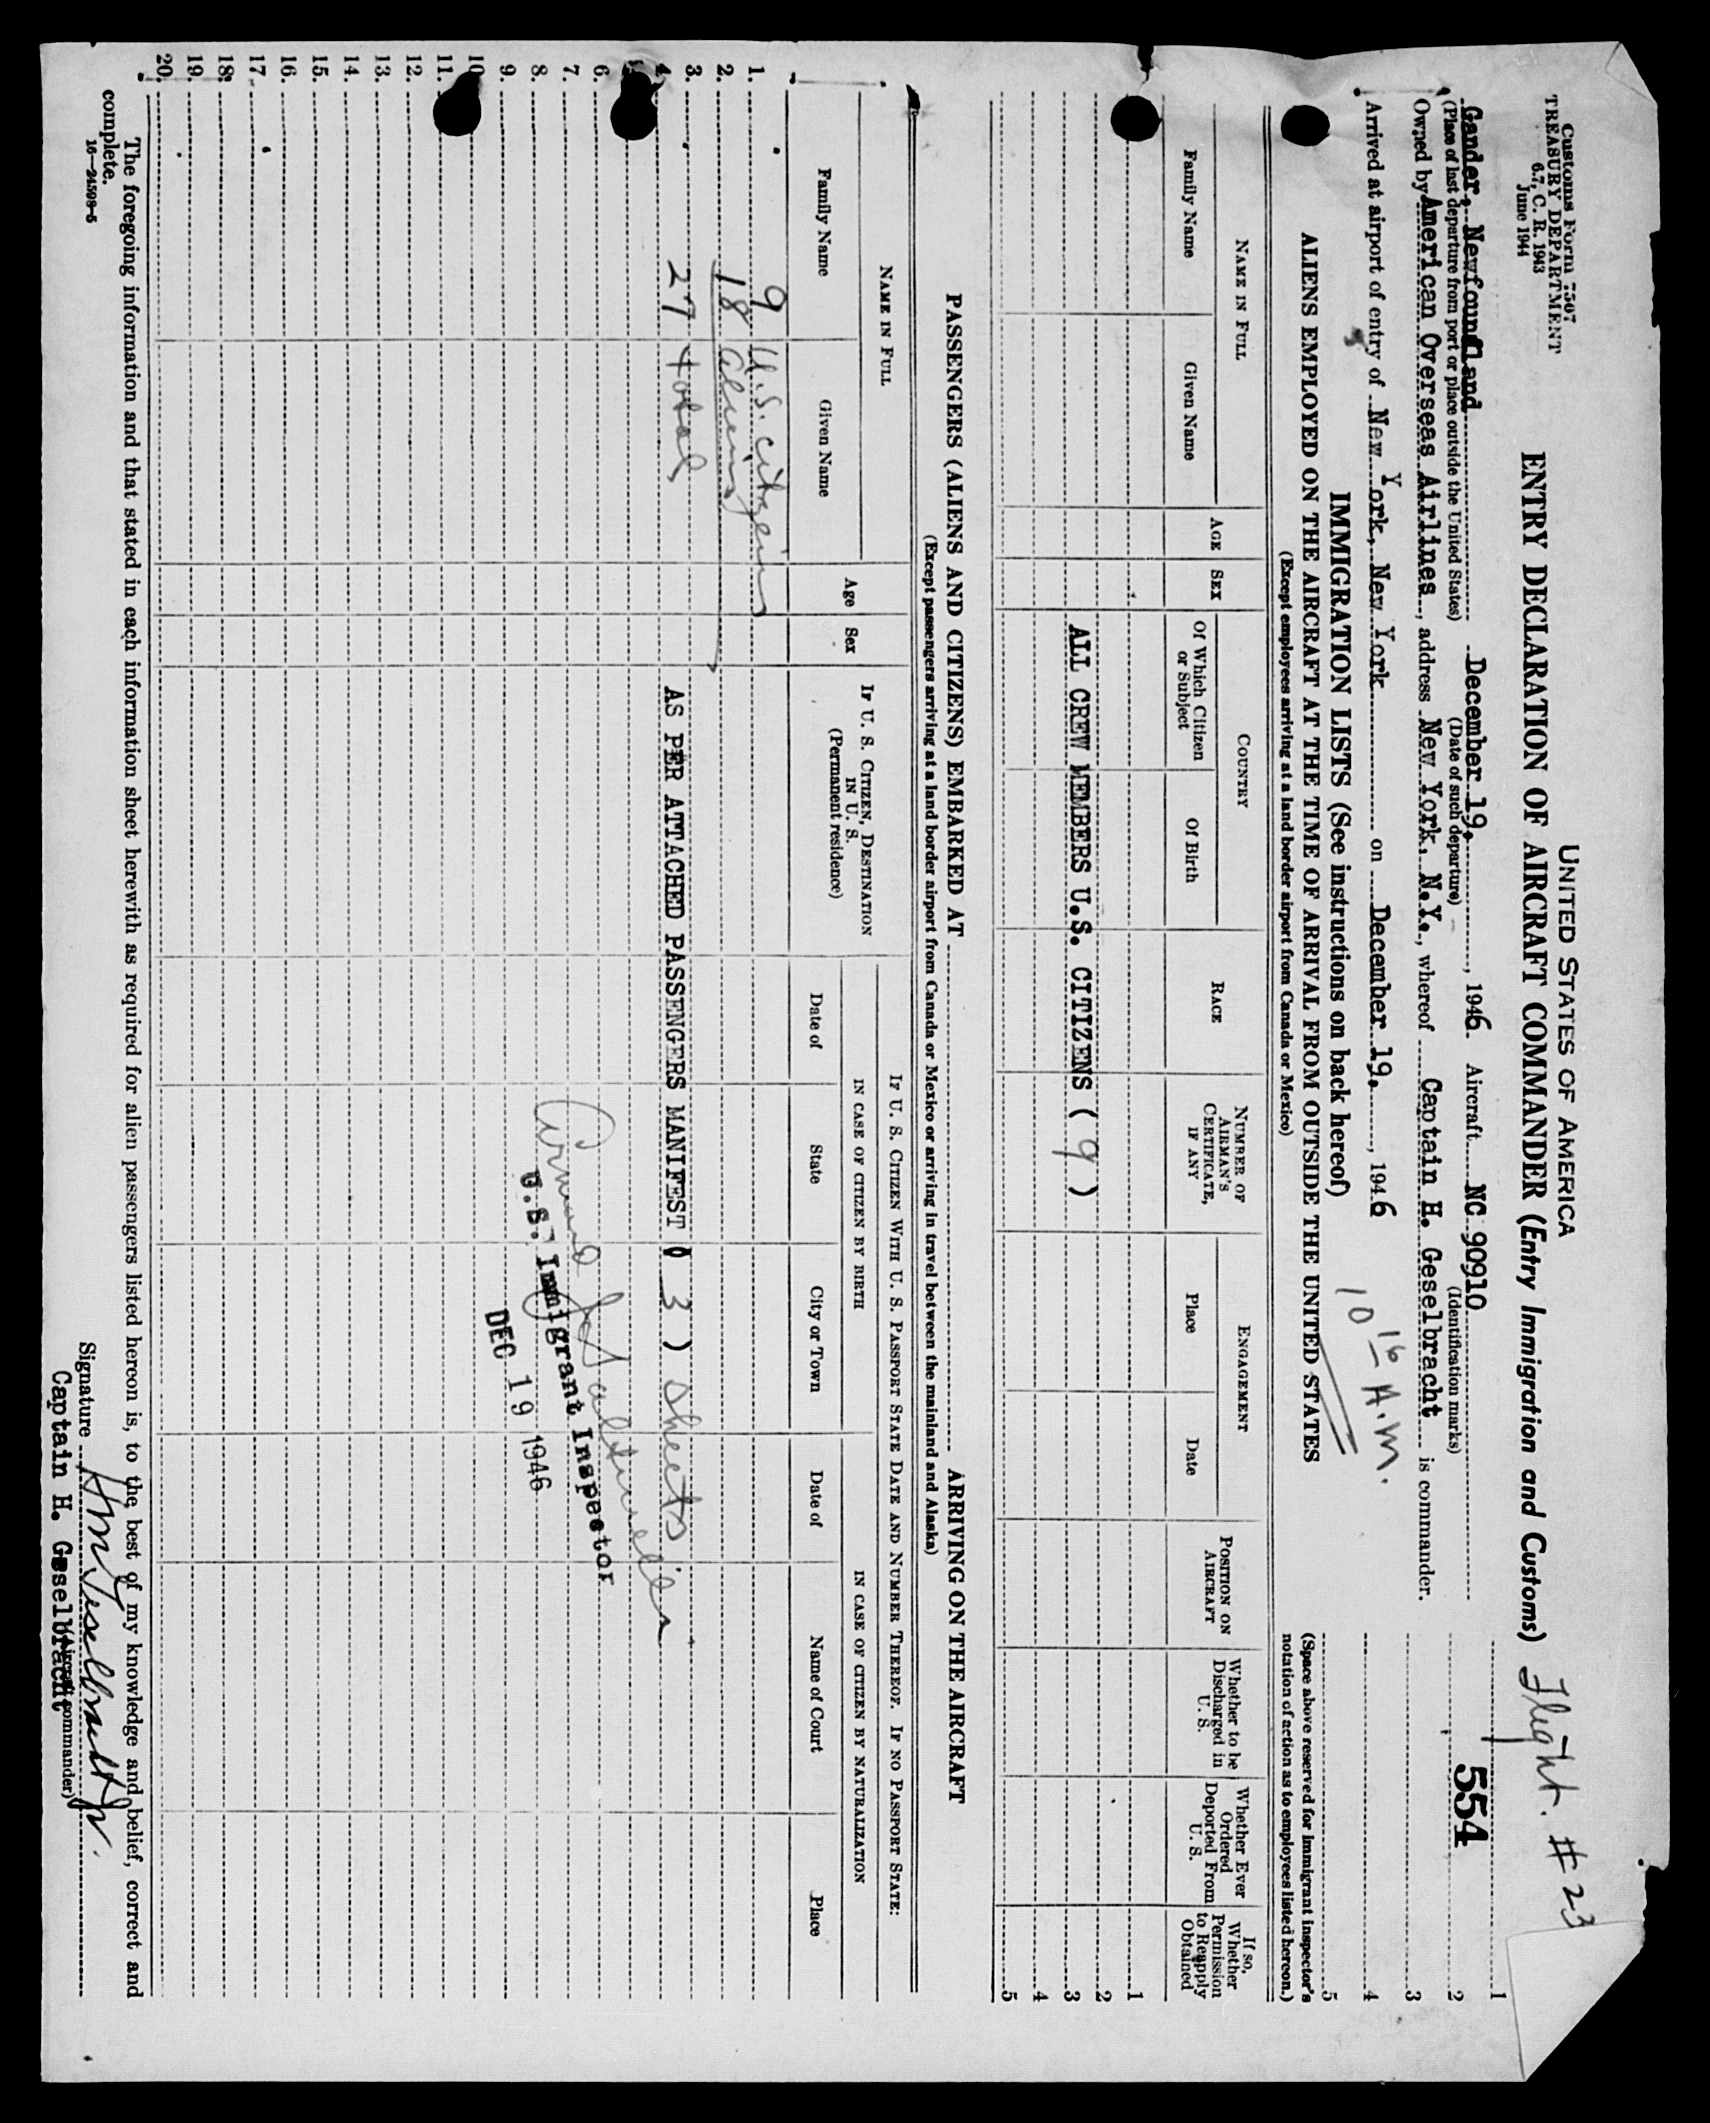 Customs Form 7507
TREASURY DEPARTMENT
6.7, C. R. 1943
June 1944
UNITED STATES OF AMERICA
ENTRY DECLARATION OF AIRCRAFT COMMANDER (Entry Immigration and Customs)
Flight. # 23
554
Gander, Newfoundland December 19. , 1946. Aircraft NC 90910
(Place of last departure from port or place outside the United States) (Date of such departure) (Identification marks)
Owned by American Overseas Airlines, address New York, N.Y., whereof Captain H. Geselbracht is commander.
Arrived at airport of entry of New York, New York on December 19. , 1946
10 16 A.M.
1
2
3
4
5
(Space above reserved for immigrant inspector's
notation of action as to employees listed hereon.)
IMMIGRATION LISTS (See instructions on back hereof)
ALIENS EMPLOYED ON THE AIRCRAFT AT THE TIME OF ARRIVAL FROM OUTSIDE THE UNITED STATES
(Except employees arriving at a land border airport from Canada or Mexico)
NAME IN FULL
Family Name
Given Name
AGE
SEX
COUNTRY
Of Which Citizen or Subject
Of Birth
RACE
NUMBER OF AIRMAN'S CERTIFICATE, IF ANY
ENGAGEMENT
Place
Date
POSITION ON AIRCRAFT
Whether to be Discharged in U. S.
Whether Ever Ordered Deported From U. S.
If so, Whether Permission to Reapply Obtained
1
2
ALL CREW MEMBERS U.S. CITIZENS ( 9 )
3
4
5
PASSENGERS (ALIENS AND CITIZENS) EMBARKED AT ARRIVING ON THE AIRCRAFT
(Except passengers arriving at a land border airport from Canada or Mexico or arriving in travel between the mainland and Alaska)
NAME IN FULL
Family Name
Given Name
Age
Sex
IF U. S. CITIZEN, DESTINATION IN U. S.
(Permanent residence)
IF U. S. CITIZEN WITH U. S. PASSPORT STATE DATE AND NUMBER THEREOF. IF NO PASSPORT STATE:
IN CASE OF CITIZEN BY BIRTH
IN CASE OF CITIZEN BY NATURALIZATION
Date of
State
City or Town
Date of
Name of Court
Place
1. 9 U.S. citizens
2. 18 aliens
3. 27 total
AS PER ATTACHED PASSENGERS MANIFEST ( 3 ) sheets
4.
6.
7.
8.
9.
10.
11.
12.
13.
14.
15.
16.
17.
18.
19.
20.
U.S. Immigrant Inspector
DEC 19 1946
The foregoing information and that stated in each information sheet herewith as required for alien passengers listed hereon is, to the best of my knowledge and belief, correct and
complete.
16—24508-5
Signature H M Geselbracht Jr.
(Aircraft commander)
Captain H. Geselbracht